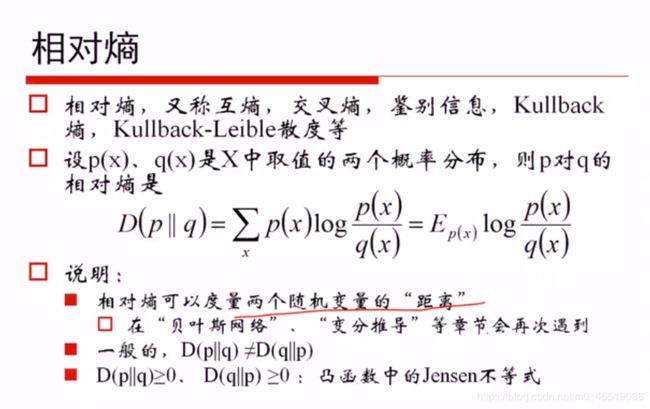 相对熵
相对熵，又称互熵，交叉熵，鉴别信息，Kullback
熵，Kullback-Leible散度等
设p(x)、q(x)是X中取值的两个概率分布，则p对q的
相对熵是
D(p||q)=∑ₓ p(x)log p(x)/q(x) = E_{p(x)} log p(x)/q(x)
说明：
相对熵可以度量两个随机变量的“距离”
在“贝叶斯网络”、“变分推导”等章节会再次遇到
一般的，D(p||q) ≠D(q||p)
D(p||q)≥0、 D(q||p) ≥0：凸函数中的Jensen不等式